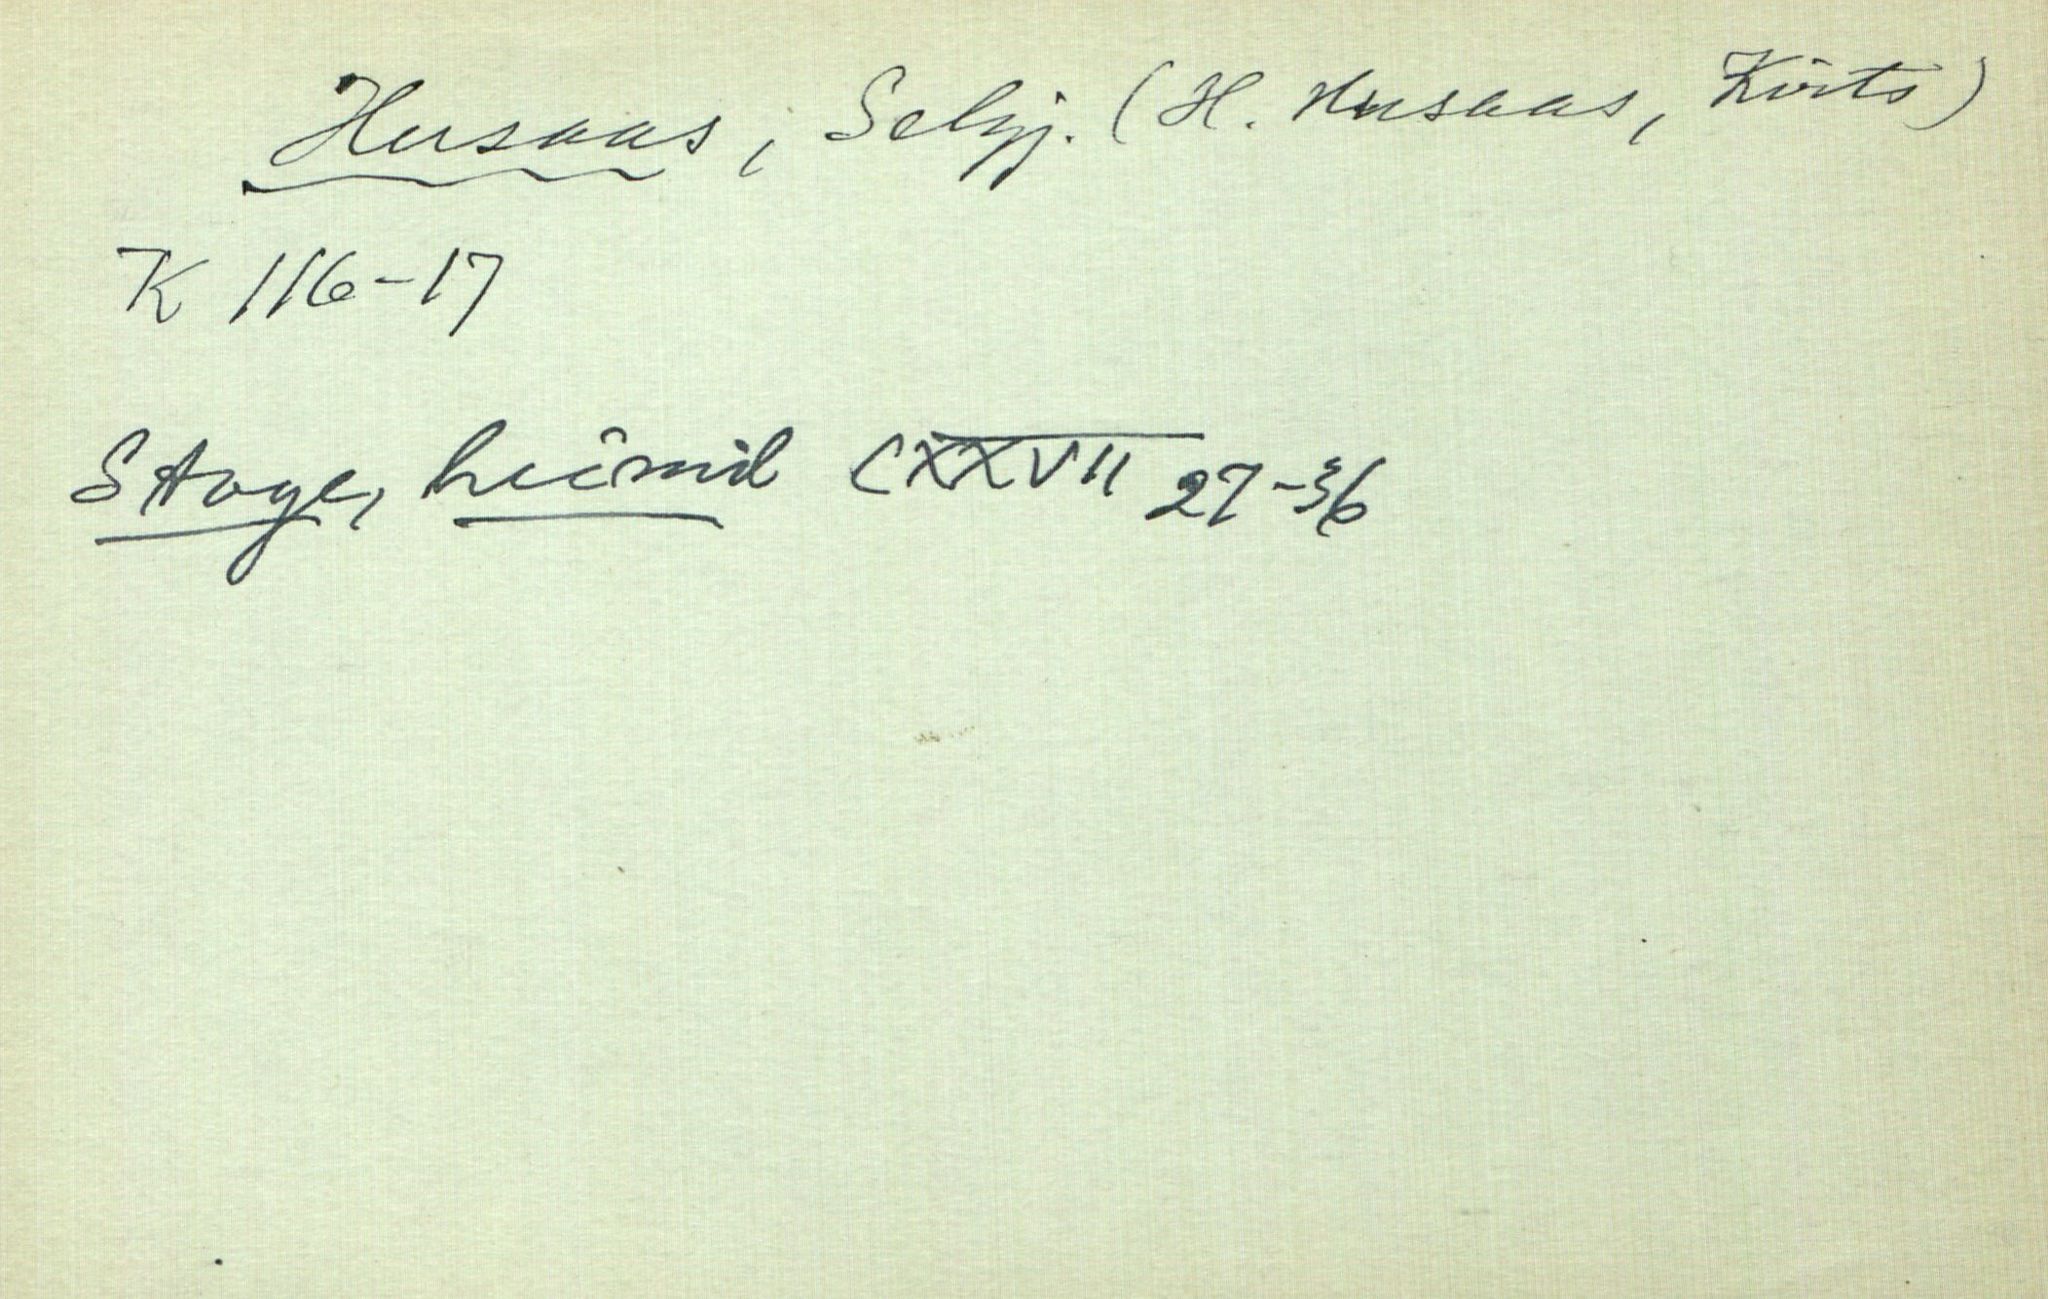 Husaas, Selbj. (H. Husaas, Kirts)
K 116-17
St Aage, heimil CXXVII 27-36